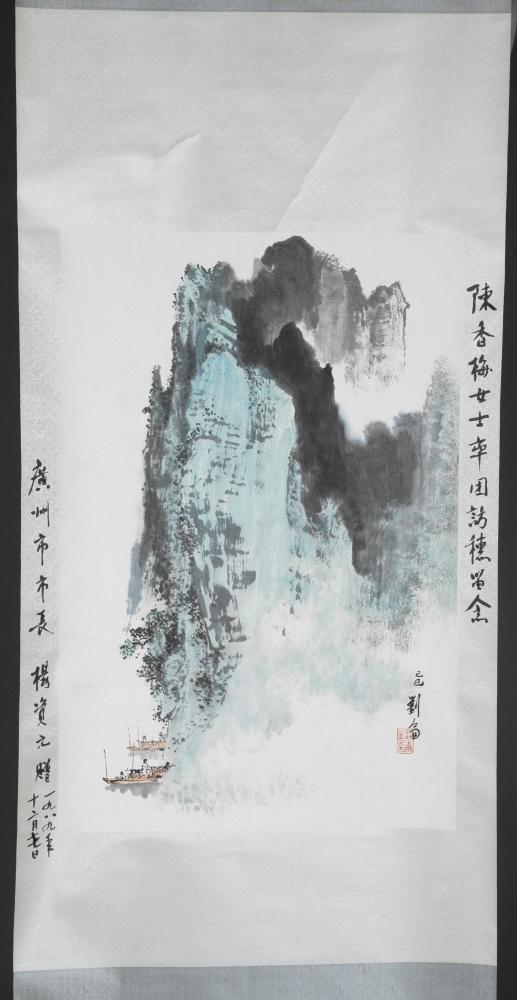 陳香梅女士率团訪穗留念
己巳
劉侖
廣州市市長 楊資元贈
一九八九年
十二月七日